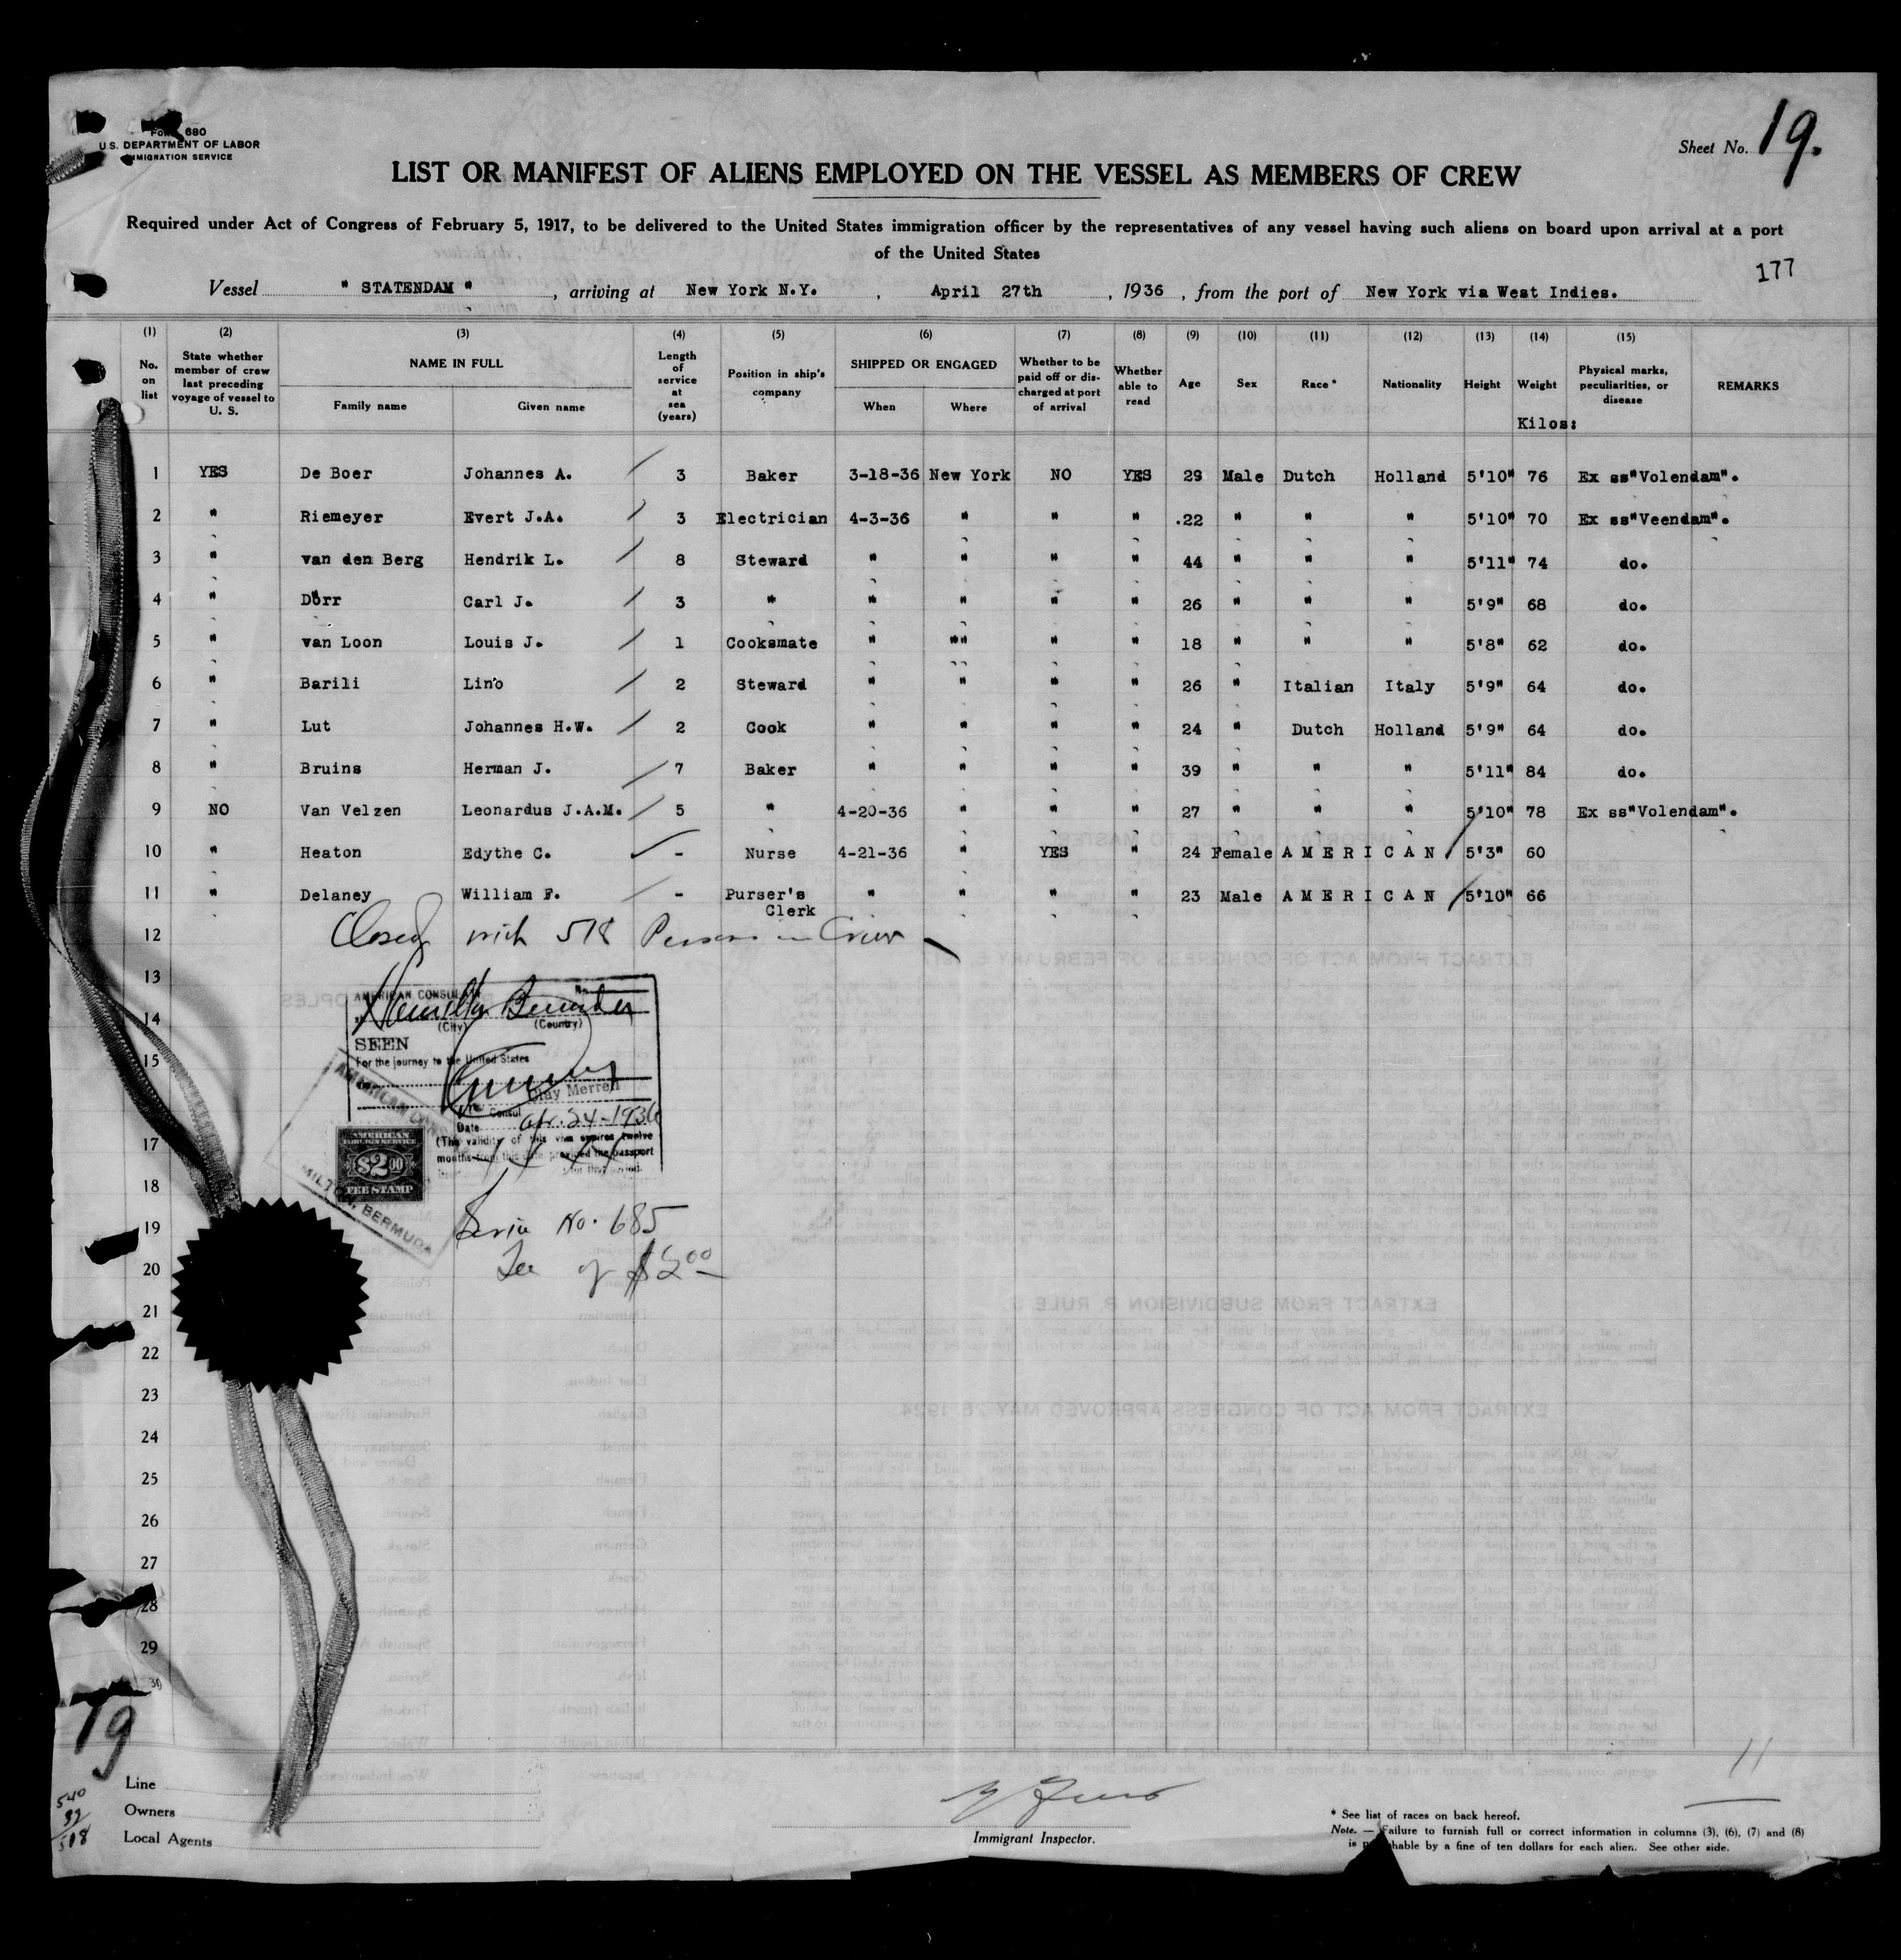 Form 680
U.S. DEPARTMENT OF LABOR
IMMIGRATION SERVICE
Sheet No. 19.
LIST OR MANIFEST OF ALIENS EMPLOYED ON THE VESSEL AS MEMBERS OF CREW
Required under Act of Congress of February 5, 1917, to be delivered to the United States immigration officer by the representatives of any vessel having such aliens on board upon arrival at a port
of the United States
177
Vessel " STATENDAM " , arriving at New York N.Y. , April 27th , 1936 , from the port of New York via West Indies.
(1) (2) (3) (4) (5) (6) (7) (8) (9) (10) (11) (12) (13) (14) (15)
No. on list State whether member of crew last preceding voyage of vessel to U. S. NAME IN FULL Family name Given name Length of service at sea (years) Position in ship's company SHIPPED OR ENGAGED When Where Whether to be paid off or discharged at port of arrival Whether able to read Age Sex Race * Nationality Height Weight Physical marks, peculiarities, or disease REMARKS
Kilos:
1 YES De Boer Johannes A. 3 Baker 3-18-36 New York NO YES 29 Male Dutch Holland 5'10" 76 Ex ss"Volendam".
2 " Riemeyer Evert J.A. 3 Electrician 4-3-36 " " " .22 " " " 5'10" 70 Ex ss"Veendam".
3 " van den Berg Hendrik L. 8 Steward " " " " 44 " " " 5'11" 74 do.
4 " Dörr Carl J. 3 " " " " " 26 " " " 5'9" 68 do.
5 " van Loon Louis J. 1 Cooksmate " "" " " 18 " " " 5'8" 62 do.
6 " Barili Lino 2 Steward " " " " 26 " Italian Italy 5'9" 64 do.
7 " Lut Johannes H.W. 2 Cook " " " " 24 " Dutch Holland 5'9" 64 do.
8 " Bruins Herman J. 7 Baker " " " " 39 " " " 5'11" 84 do.
9 NO Van Velzen Leonardus J.A.M. 5 " 4-20-36 " " " 27 " " " 5'10" 78 Ex ss"Volendam".
10 " Heaton Edythe C. - Nurse 4-21-36 " YES " 24 Female AMERICAN 5'3" 60
11 " Delaney William F. - Purser's Clerk " " " " 23 Male AMERICAN 5'10" 66
12 Closed with 518 Persons in Crew
13
AMERICAN CONSULATE No.
14 Hamilton Bermuda
(City) (Country)
SEEN
15 For the journey to the United States
Clay Merrell
Consul
Date Apr. 24-1936
17 (The validity of this visa expires twelve
months from this date provided the passport
for that period.
AMERICAN
FOREIGN SERVICE
$2.00
FEE STAMP
AMERICAN
HAMILTON, BERMUDA
18
19 No. 685
20 Fee of $2.00
21
22
23
24
25
26
27
28
29
30
19
11
Line
Owners
Local Agents
518
Immigrant Inspector.
* See list of races on back hereof.
Note. — Failure to furnish full or correct information in columns (3), (6), (7) and (8)
is punishable by a fine of ten dollars for each alien. See other side.